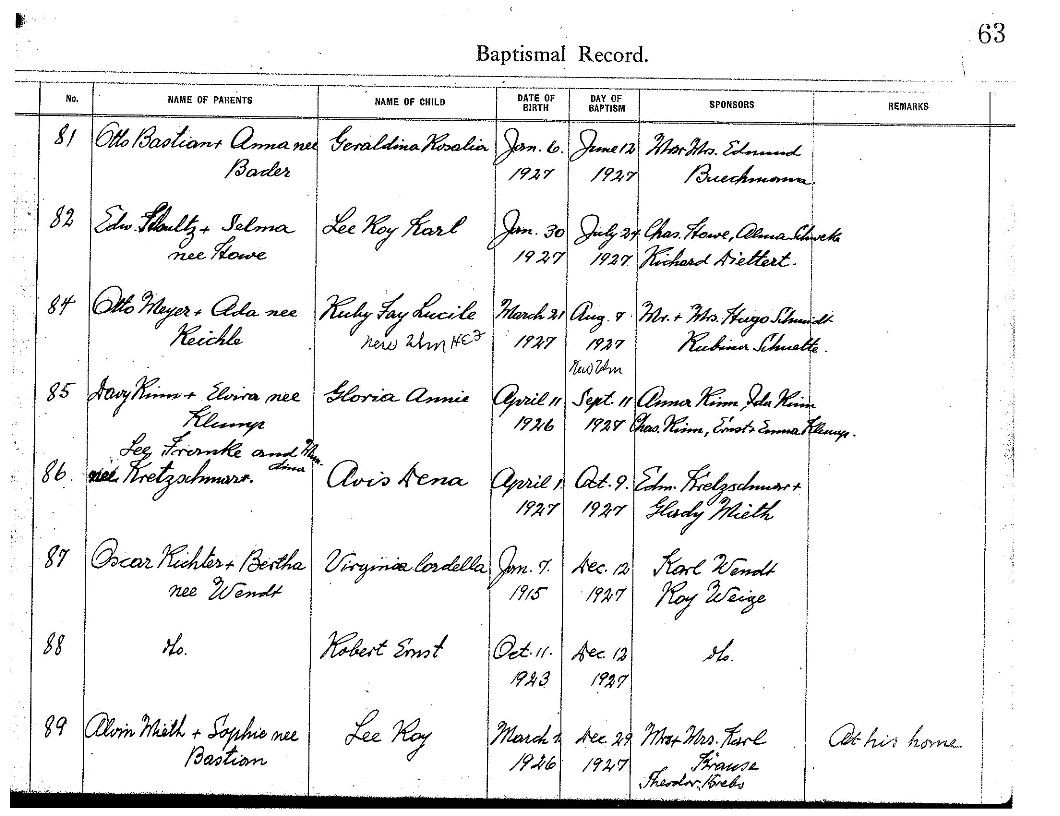 63
Baptismal Record.
No. NAME OF PARENTS NAME OF CHILD DATE OF BIRTH DAY OF BAPTISM SPONSORS REMARKS
81 Otto Bastian + Anna nee Geraldina Rosalia Jan. 6. June 12 Mr + Mrs. Edmund
Bader 1927 1927
82 Edw. Schultz + Selma Lee Roy Karl Jan. 30 July 24 Chas. Stowe, Alma
nee Stowe 1927 1927 Richard Diettert.
84 Otto Meyer + Ada nee Ruby Fay Lucile March 21 Aug. 7 Mr. + Mrs. Hugo Schmidt
Reichle New Ulm 1927 1927 Rubina Schuette.
New Ulm
85 Davy Kinn + Elvira nee Gloria Annie April 11 Sept. 11 Anna Kinn, Ida Kinn
Klump 1926 1927 Chas. Kinn, Ernst + Emma Klump.
Lee Franke and
86. nee Kretzschmar. Avis Dena April 1 Oct. 9. Edm. Kretzschmar +
1927 1927 Glady Mieth
87 Oscar Richter + Bertha Virginia Cordella Jan. 7. Dec. 12 Karl Wendt
nee Wendt 1915 1927 Roy Weige
88 do. Robert Ernst Oct. 11. Dec. 12 do.
1923 1927
89 Alvin Mieth + Sophie nee Lee Roy March Dec. 29 Mr + Mrs. Karl At his home
Bastian 1926 1927 Krause
Theodor Krebs